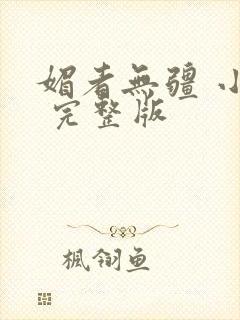 媚者無疆 小
完整版
楓翎魚